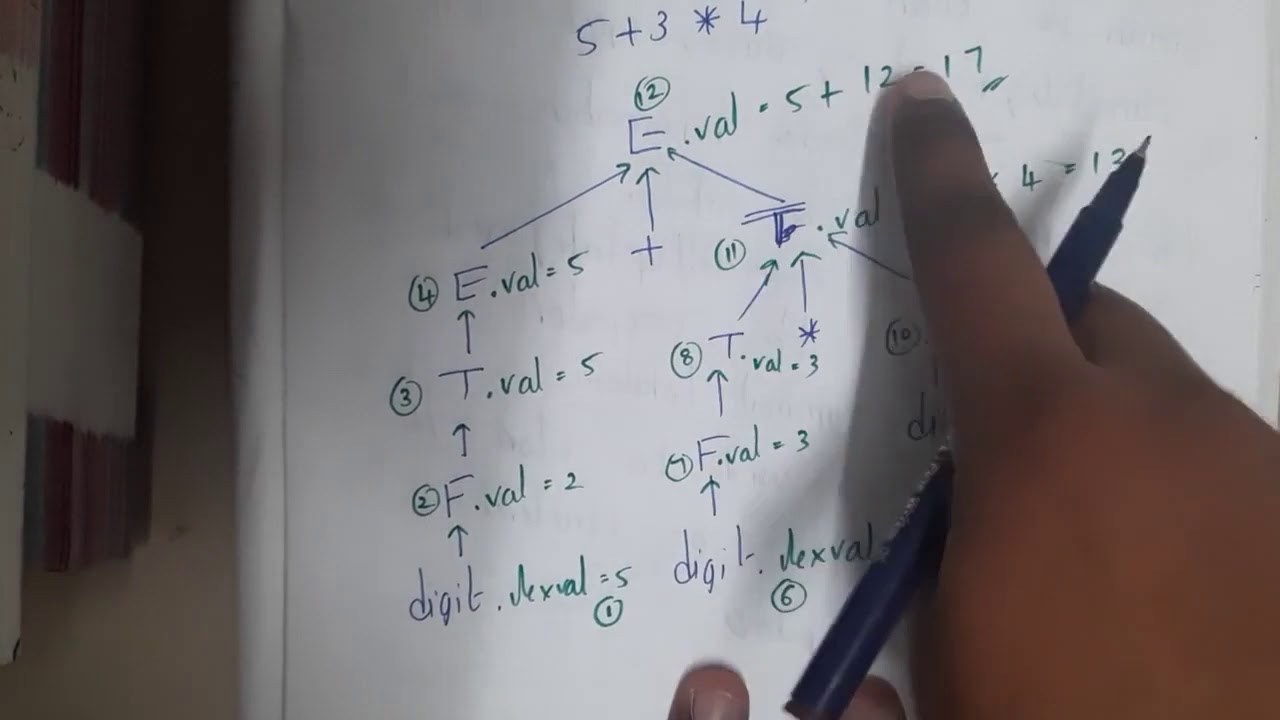 5 + 3 * 4
12
E.val = 5 + 12 = 17
4 = 12
11 T.val
4 E.val = 5 +
8 T.val = 3 *
10
3 T.val = 5
7 F.val = 3
2 F.val = 2
digit.lexval
6
digit.lexval = 5
1